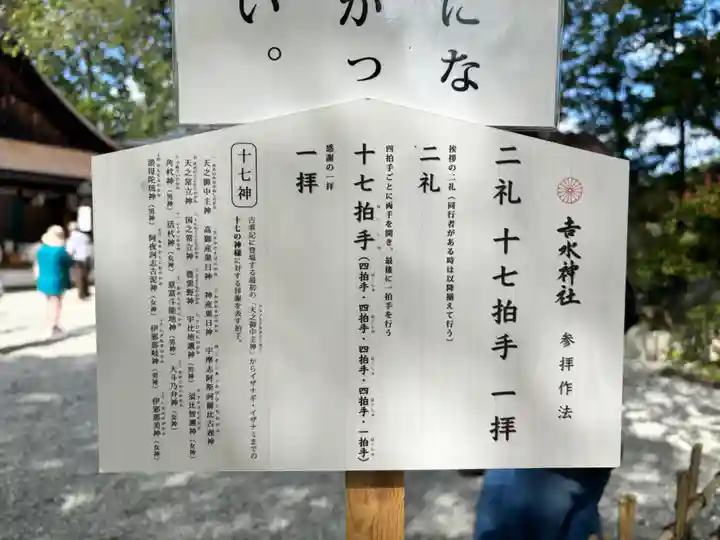 にな
がっ
い。
吉水神社
参拝作法
二礼 十七拍手 一拝
挨拶の二礼(同行者がある時は以降揃えて行う)
二礼
四拍手ごとに両手を開き、最後に一拍手を行う
十七拍手(四拍手・四拍手・四拍手・四拍手・一拍手)
感謝の一拝
一拝
十七神
古事記に登場する最初の「天之御中主神」からイザナギ・イザナミまでの
十七の神様に対する拝謝を表す拍手。
天之御中主神 高御産巣日神 神産巣日神 宇摩志阿斯訶備比古遅神
天之常立神 国之常立神 豊雲野神 宇比地邇神(男神) 須比智邇神(女神)
角杙神(男神) 活杙神(女神) 意富斗能地神(男神) 大斗乃弁神(女神)
淤母陀琉神(男神) 阿夜訶志古泥神(女神) 伊邪那岐神(男神) 伊邪那美神(女神)